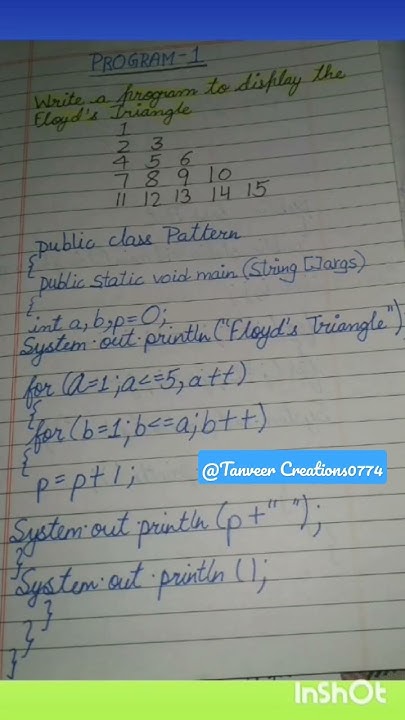 PROGRAM-1
Write a program to display the
Floyd's Triangle
1
2 3
4 5 6
7 8 9 10
11 12 13 14 15
public class Pattern
{
public static void main (String []args)
{
int a,b,p=0;
System.out.println("Floyd's Triangle")
for (a=1;a<=5,a++)
{
for (b=1;b<=a;b++)
{
p=p+1;
@Tanveer Creations0774
System.out.println (p+" ");
}
System.out.println ();
}
}
}
InShOt